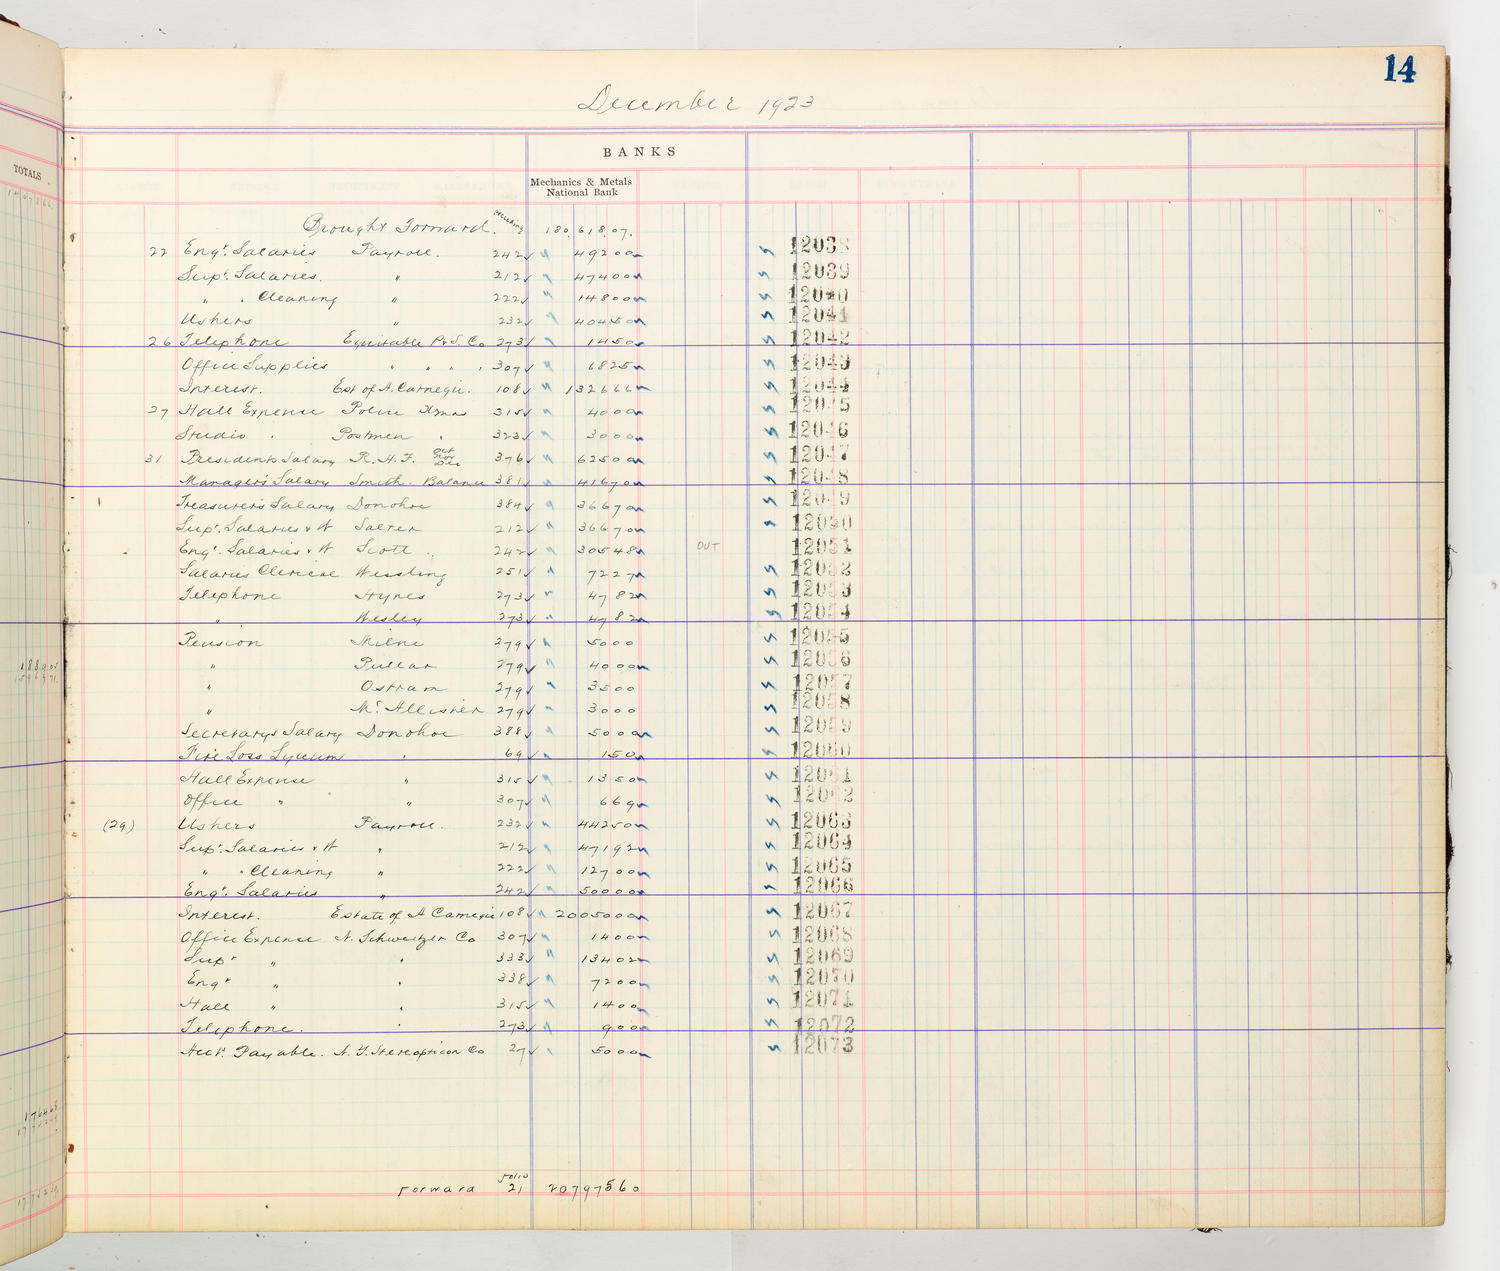 14
December 1923
TOTALS
BANKS
Mechanics & Metals
National Bank
Brought Forward. 180,618.07.
22 Engr. Salaries Payroll. 242 ✓ " 49200 12038
Supt. Salaries. " 212 ✓ " 47400 12039
" . Cleaning " 222 ✓ " 14800 12040
Ushers " 232 ✓ " 40450 12041
26 Telephone Equitable P. & S. Co 273 ✓ " 1450 12042
Office Supplies " " " " 307 ✓ " 6825 12043
Interest. Est of A. Carnegie. 108 ✓ " 132666 12044
27 Hall Expense Police Xmas 315 ✓ " 4000 12045
Studio . Postmen . 323 ✓ " 3000 12046
31 Presidents Salary R.H.F. Oct Nov Dec 376 ✓ " 62500 12047
Manager's Salary Smith. Balance 381 ✓ " 41670 12048
Treasurer's Salary Donohoe 384 ✓ " 36670 12049
Supt. Salaries & W Salter 212 ✓ " 36670 12050
Engr. Salaries & W Scott .. 242 ✓ " 30548 OUT 12051
Salaries Clerical Wessling 251 ✓ " 7227 12052
Telephone Hynes 273 ✓ " 4782 12053
" Wesley 273 ✓ " 4782 12054
Pension Milne 279 ✓ " 5000 12055
" Pullar 279 ✓ " 4000 12056
" Ostram 279 ✓ " 3500 12057
" McAllister 279 ✓ " 3000 12058
Secretarys Salary Donohoe 388 ✓ " 5000 12059
Fire Loss Lyceum . 69 ✓ " 150 12060
Hall Expense " 315 ✓ " 1350 12061
Office " " 307 ✓ " 669 12062
(29) Ushers Payroll. 232 ✓ " 44250 12063
Supt. Salaries & W " 212 ✓ " 47192 12064
" " Cleaning " 222 ✓ " 12700 12065
Engr. Salaries " 242 ✓ " 50000 12066
Interest. Estate of A Carnegie 108 ✓ " 2005000 12067
Office Expense N. Schweitzer Co 307 ✓ " 1400 12068
Supt " " 333 ✓ " 13402 12069
Engr " " 338 ✓ " 7200 12070
Hall " " 315 ✓ " 1400 12071
Telephone. " 273 ✓ " 900 12072
Acct. Payable. N.Y. Stereopticon Co 27 ✓ " 5000 12073
Forward Folio 21 20797560